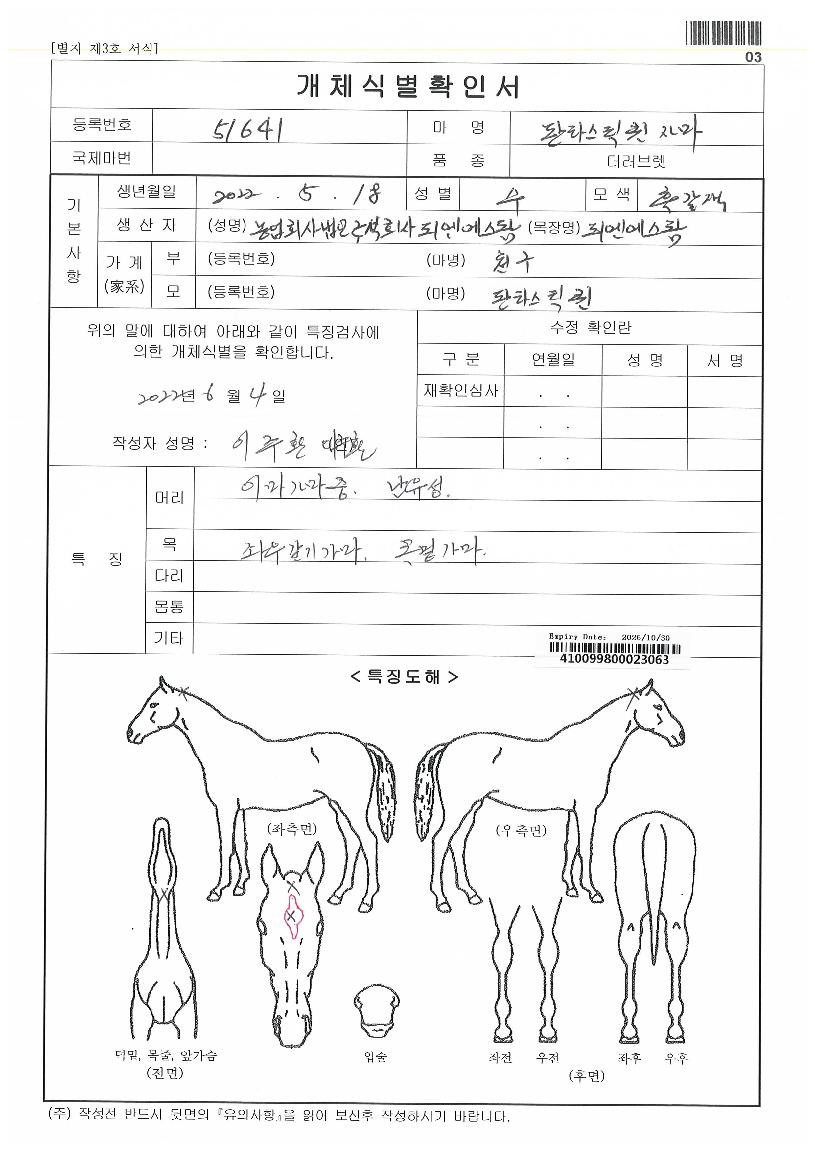 [별지 제3호 서식]
03
개체식별확인서
등록번호 51641 마 명 판타스틱퀸 자마
국제마번 품 종 더러브렛
기본사항
생년월일 2022 . 5 . 18 성 별 수 모 색 흑갈색
생 산 지 (성명) 농업회사법인 주식회사 티엔에스팜 (목장명) 티엔에스팜
가 계 (家系)
부 (등록번호) (마명) 친구
모 (등록번호) (마명) 판타스틱퀸
위의 말에 대하여 아래와 같이 특징검사에
의한 개체식별을 확인합니다.
2022년 6 월 4 일
작성자 성명 : 이주환
수정 확인란
구 분 연월일 성 명 서 명
재확인심사 . .
. .
. .
특 징
머리 이마가마중. 난유성.
목 좌우갈기가마. 목밑가마.
다리
몸통
기타
Expiry Date: 2026/10/30
410099800023063
< 특징도해 >
(좌측면)
(우측면)
턱밑, 목줄, 앞가슴
(전면)
입술
좌전 우전 좌후 우후
(후면)
(주) 작성전 반드시 뒷면의 『유의사항』을 읽어 보신후 작성하시기 바랍니다.